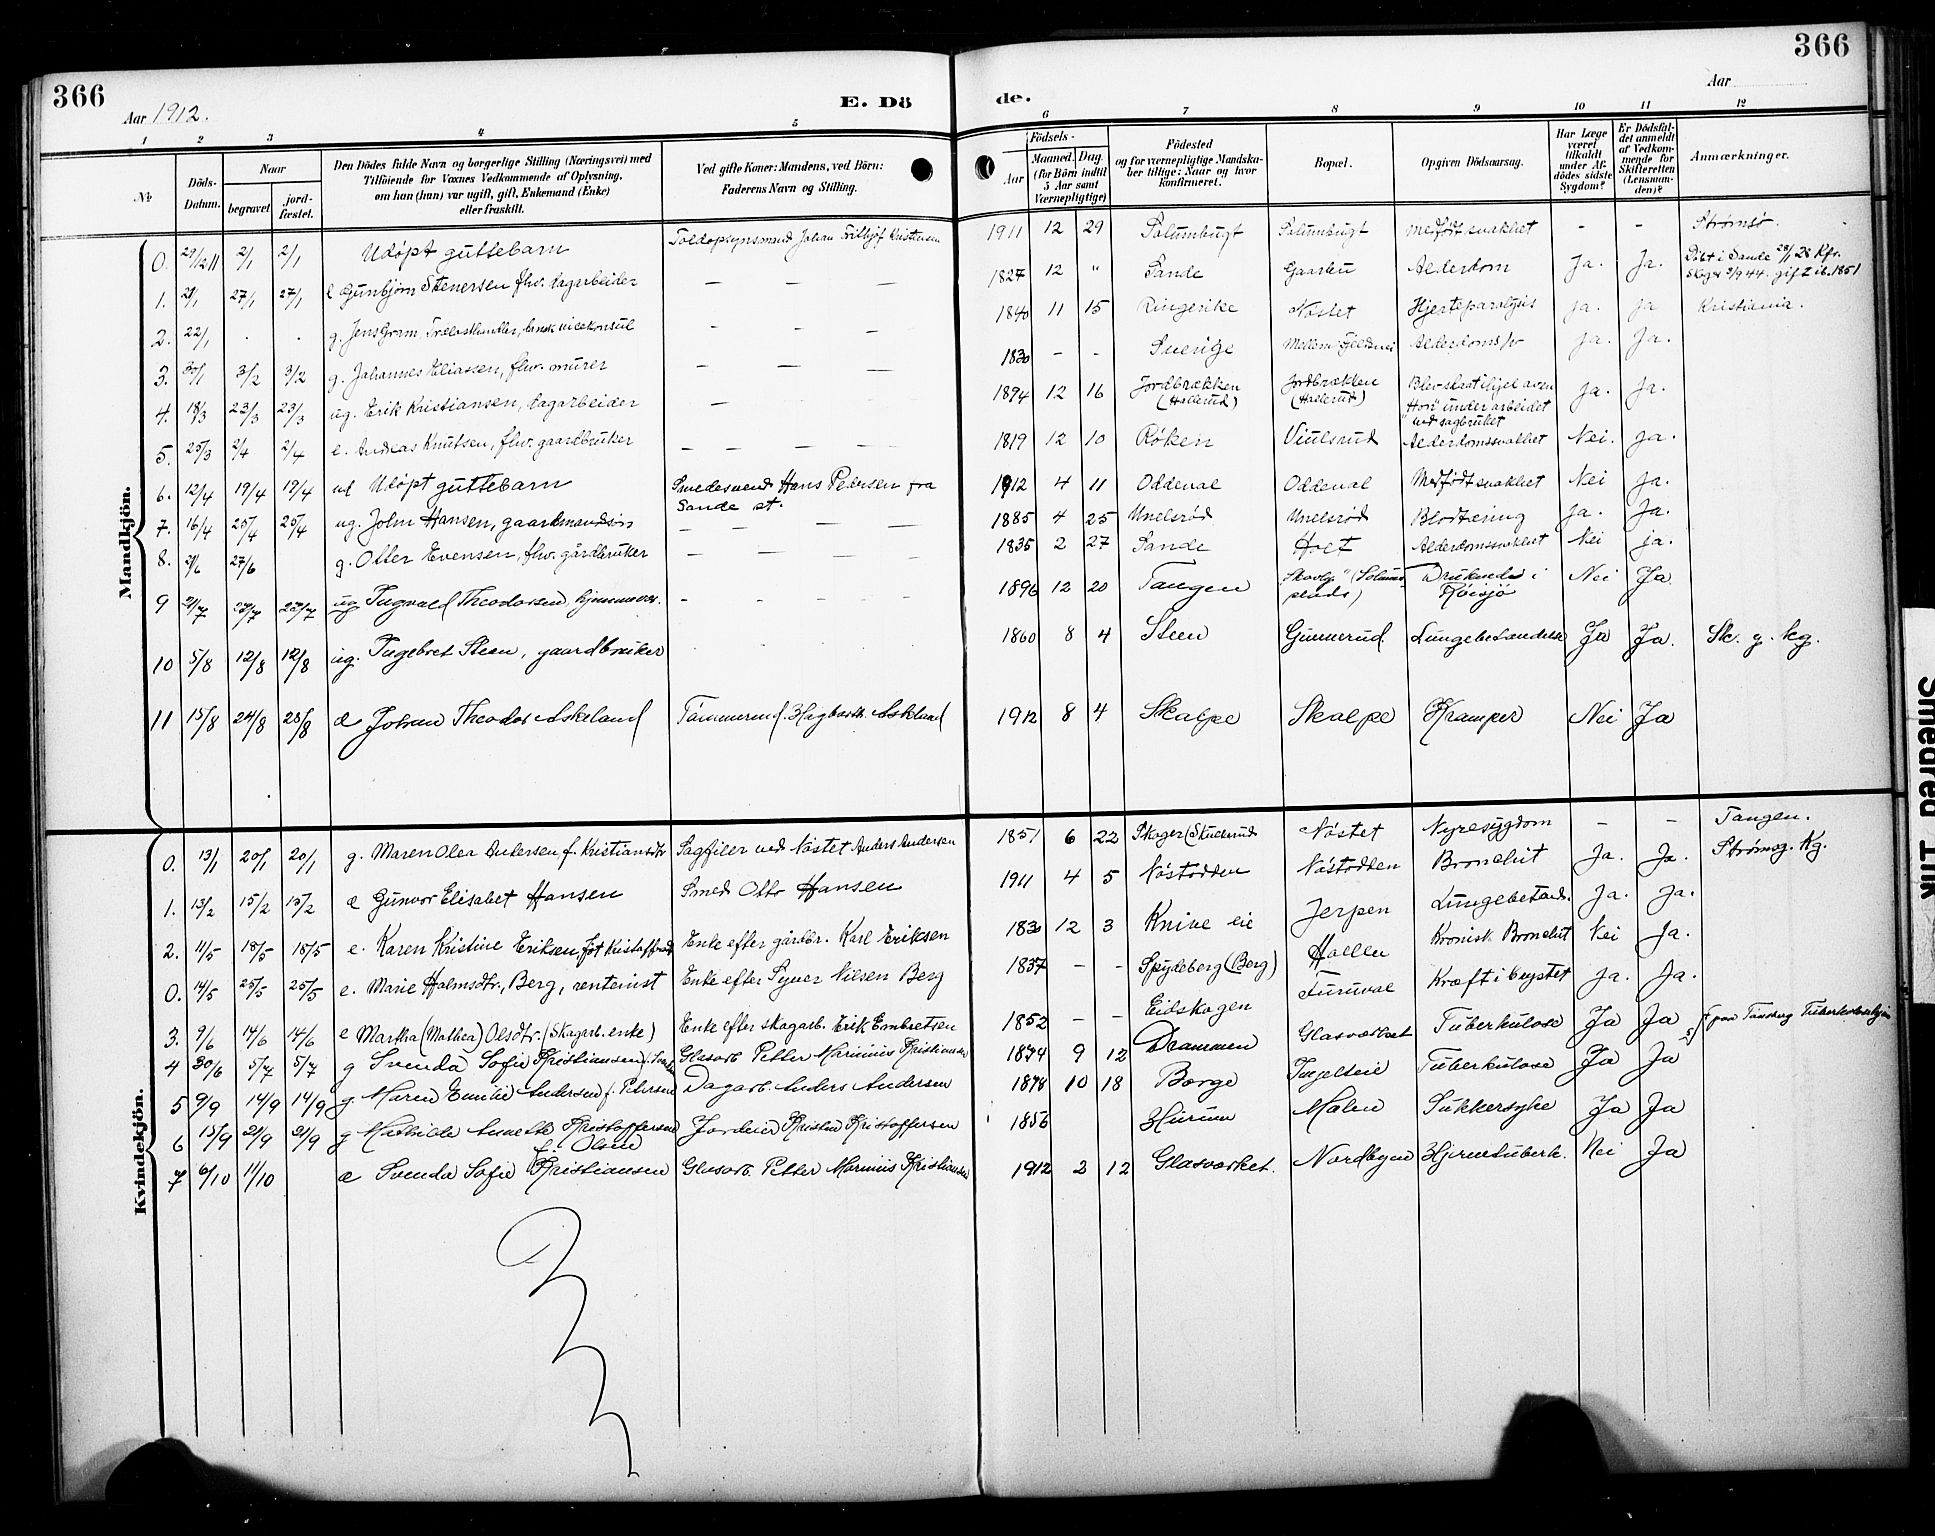 366
Aar 1912.
E. Dö
de.
366
Aar
1 2 3 4 5 6 7 8 9 10 11 12
№
Döds-Datum.
Naar
begravet.
jord-fæstet.
Den Dödes fulde Navn og borgerlige Stilling (Næringsvei) med
Tilföiende for Voxnes Vedkommende af Oplysning,
om han (hun) var ugift, gift, Enkemand (Enke)
eller fraskilt.
Ved gifte Koner: Mandens, ved Börn:
Faderens Navn og Stilling.
Födsels-
Aar
Maaned. Dag.
(for Börn indtil
5 Aar samt
Værnepligtige)
Födested
og for værnepligtige Mandska-
ber tillige: Naar og hvor
konfirmeret.
Bopæl.
Opgiven Dödsaarsag.
Har Læge
været
tilkaldt
under Af-
dödes sidste
Sygdom?
Er Dödsfal-
det anmeldt
af Vedkom-
mende for
Skifteretten
(Lensman-
den)?
Anmærkninger.
Mandkjön.
0. 29/12 11 2/1 2/1 Udöpt guttebarn Toldopsynsmand Johan Kristensen 1911 12 29 Solumbugt Solumbugt medfödt svakhet - - Strömsö
1. 21/1 27/1 27/1 e Gunbjörn Stenersen fhv. dagarbeider — — — 1827 12 " Sande Gaarden Alderdom Ja. Ja. Döbt i Sande 28/1 28 Kfr.
Skoger 2/9 44. gift 1851
2. 22/1 . . g. Jens Gram Trælasthandler, vicekonsul - - - 1840 11 15 Ringerike Nöstet Hjerteparalysis ja. ja Kristiania.
3. 30/1 3/2 3/2 g. Johannes Eliassen, fhv. murer — — — 1830 - - Sverige Alderdomssv ja. Ja.
4. 18/3 23/3 23/3 ug. Erik Kristiansen, dagarbeider — 1894 12 16 Jordbrækken
(Hallerud) Jordbrækken
(Hallerud) Blev slaat ihjel av en
under arbeidet
ved sagbruket ja. ja.
5. 25/3 2/4 2/4 e. Andreas Knutsen, fhv. gaardbruker — — — 1819 12 10 Röken Viulsrud Alderdomssvakhet Nei. ja.
6. 12/4 19/4 19/4 Udöpt guttebarn Smedesvend Hans Pedersen fra
Sande st. 1912 4 11 Oddeval Oddeval Medfödt svakhet Nei ja.
7. 16/4 25/4 25/4 ug. John Hansen, gaardmandsön — — — 1885 4 25 Unelsröd Unelsröd Blodtæring ja. Ja.
8. 21/6 27/6 g. Otter Evensen, fhv. gårdbruker — — — 1835 2 27 Sande Holt Alderdomssvakhet Nei ja.
9 21/7 ug Ingvald Theodorsen, - - - - 1896 12 20 Tangen Druknede i
Röisjö Nei Ja
10 5/8 12/8 12/8 ug. Ingebret Steen, gaardbruker 1860 8 4 Steen Gunnerud Lungebetændelse Ja Ja. Sk. g. kg.
11 15/8 24/8 25/8 æ Johan Theodor Askeland Tömmermd. Hagbarth Askeland 1912 8 4 Skalpe Skalpe Kramper Nei Ja
Kvindekjön.
0. 13/1 20/1 20/1 g. Maren Olea Andersen f. Kristiansdtr Sagfiler ved Nöstet Anders Andersen 1851 6 22 Skoger Nöstet Nyresygdom - - Tangen.
1. 13/2 15/2 15/2 æ Gunvor Elisabet Hansen Smed Otto Hansen 1911 4 5 Nöstodden Nöstodden Bronchit Ja. Ja. Strömsg. Kg.
2. 11/5 18/5 18/5 e. Karen Kristine Eriksen, Enke efter gårdbr. Karl Eriksen 1830 12 3 Knive eie Jerpen Lungebetænd. Ja. ja.
0. 14/5 25/5 25/5 e. Marie Holmsdtr., Berg, renteinist Enke efter Syver Nilsen Berg 1837 - - Spydeberg (Berg) Hallen Kronisk Bronchit Nei Ja.
3. 9/6 14/6 14/6 e Martha (Mathea) Olsdtr. (Skogarb. enke) Enke efter skogarb. Erik Embretsen 1852 — — Eidskogen Furuval Kræft i brystet ja. Ja.
4 30/6 5/7 5/7 g Svenda Sofie Kristiansen Glasarb. Petter Marinius Kristiansen 1874 9 12 Drammen Glasværket Tuberkulose Ja Ja † paa Tuberkulosehjem
5 9/9 14/9 14/9 g. Maren Emilie Andersen f. Petersen Dagarb. Anders Andersen 1878 10 18 Borge Tuberkulose Ja Ja
6 15/9 21/9 21/9 g Mathilde Kristoffersen
f. Olsen Kristen Kristoffersen 1856 Hurum Malen Sukkersyke Ja Ja
7 6/10 11/10 æ Svenda Sofie Kristiansen Glasarb. Petter Marinius Kristiansen 1912 2 12 Glasværket. Nordbyen Hjernetuberk. Nei Ja
Smedrud Trik